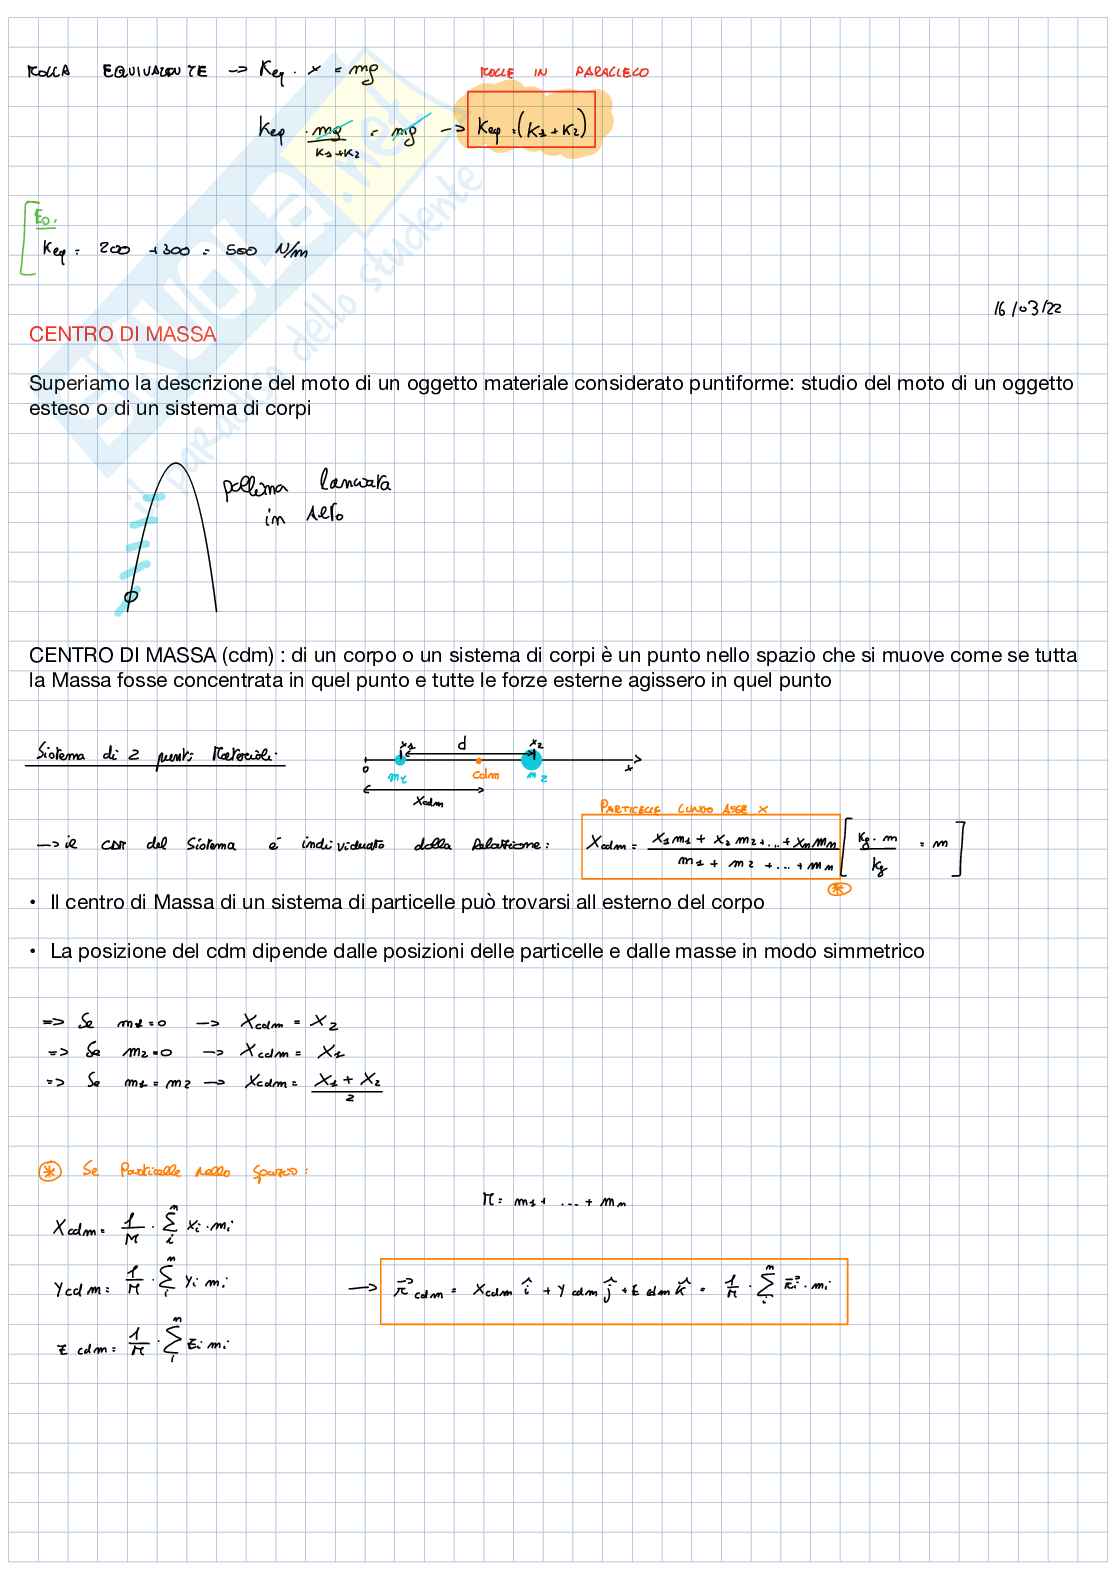 MOLLA EQUIVALENTE -> Keq · x = mg
MOLLE IN PARALLELO
Keq · mg/(K1+K2) = mg -> Keq = (K1+K2)
Es.
Keq = 200 +300 = 500 N/m
16/03/22
CENTRO DI MASSA
Superiamo la descrizione del moto di un oggetto materiale considerato puntiforme: studio del moto di un oggetto
esteso o di un sistema di corpi
pallina lanciata
in aria
CENTRO DI MASSA (cdm) : di un corpo o un sistema di corpi è un punto nello spazio che si muove come se tutta
la Massa fosse concentrata in quel punto e tutte le forze esterne agissero in quel punto
Sistema di 2 punti Materiali:
x1 d x2
0 m1 cdm m2 x
Xcdm
PARTICELLE LUNGO ASSE X
-> il CDM del Sistema è individuato dalla Relazione: Xcdm = (X1m1 + X2m2+...+Xnmn)/(m1 + m2 +...+mn) [kg·m/kg = m]
*
• Il centro di Massa di un sistema di particelle può trovarsi all esterno del corpo
• La posizione del cdm dipende dalle posizioni delle particelle e dalle masse in modo simmetrico
=> Se m1=0 -> Xcdm = X2
=> Se m2=0 -> Xcdm = X1
=> Se m1=m2 -> Xcdm = (X1+X2)/2
* Se Particelle nello Spazio:
M = m1+ ... + mn
Xcdm = 1/M · Σ xi·mi
Ycdm = 1/M · Σ yi mi
-> r⃗cdm = Xcdm î + Ycdm ĵ + Zcdm k̂ = 1/M · Σ r⃗i·mi
Zcdm = 1/M · Σ zi mi
SKUOLA.net
il paradiso dello studente